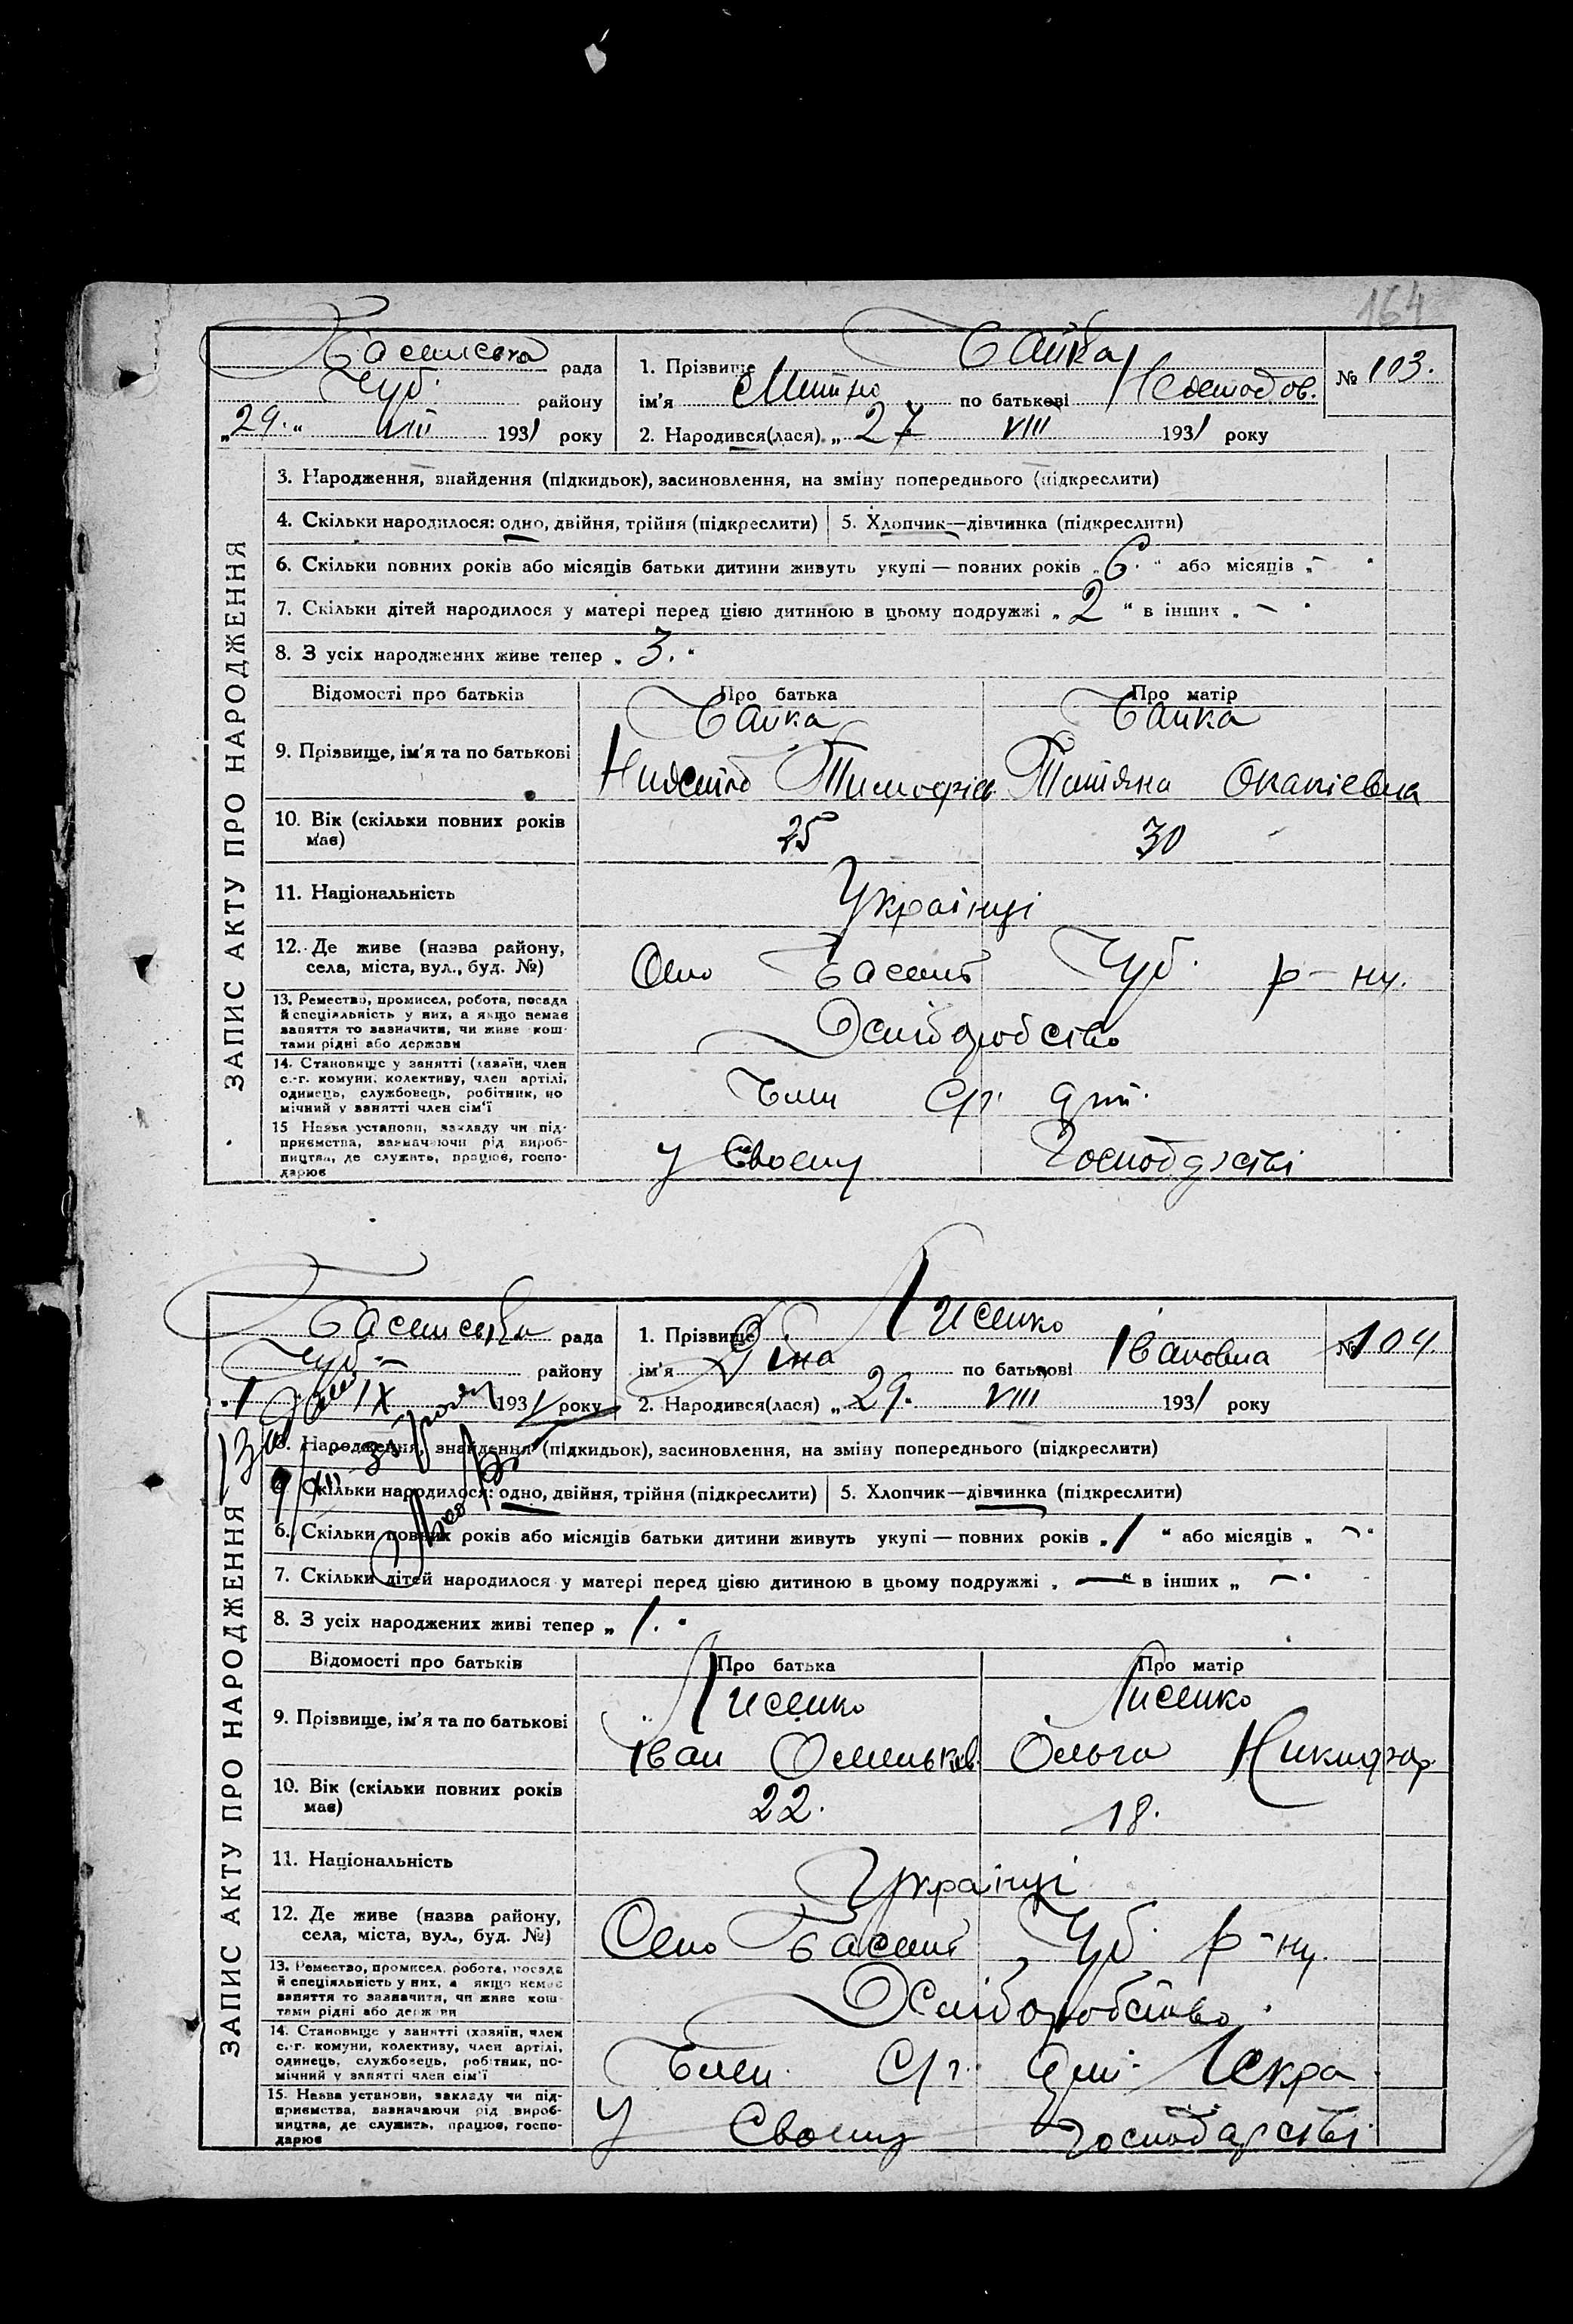 164
Басанська рада
Чуб. району
„29.“ VIII 1931 року
1. Прізвище Байка
ім'я по батькові
2. Народився(лася) „27 VIII 1931 року
№ 103.
ЗАПИС АКТУ ПРО НАРОДЖЕННЯ
3. Народження, знайдення (підкидьок), засиновлення, на зміну попереднього (підкреслити)
4. Скільки народилося: одно, двійня, трійня (підкреслити) 5. Хлопчик—дівчинка (підкреслити)
6. Скільки повних років або місяців батьки дитини живуть укупі — повних років „6.“ або місяців „-“
7. Скільки дітей народилося у матері перед цією дитиною в цьому подружжі „2“ в інших „-“
8. З усіх народжених живе тепер „3.“
Відомості про батьків Про батька Про матір
9. Прізвище, ім'я та по батькові
Байка Байка
Тимофієв. Тетяна
10. Вік (скільки повних років має)
25 30
11. Національність
Українці
12. Де живе (назва району, села, міста, вул., буд. №)
Село Басань Чуб. р-ну.
13. Ремество, промисел, робота, посада й спеціяльність у них, а якщо немає заняття то зазначити, чи живе коштами рідні або держави
Хліборобство
14. Становище у занятті (хазяїн, член с.-г. комуни, колективу, член артілі, одинець, службовець, робітник, помічний у занятті член сім'ї
Член с/г. арт.
15 Назва установи, закладу чи підприємства, зазначаючи рід виробництва, де служить, працює, господарює
У своєму господарстві
Басанська рада
Чуб. району
1 IX 1931 року
1. Прізвище Лисенко
ім'я Ніна по батькові Івановна
2. Народився(лася) „29. VIII 1931 року
№ 104.
ЗАПИС АКТУ ПРО НАРОДЖЕННЯ
3. Народження, знайдення (підкидьок), засиновлення, на зміну попереднього (підкреслити)
4. Скільки народилося: одно, двійня, трійня (підкреслити) 5. Хлопчик—дівчинка (підкреслити)
6. Скільки повних років або місяців батьки дитини живуть укупі — повних років „1“ або місяців „-“
7. Скільки дітей народилося у матері перед цією дитиною в цьому подружжі „—“ в інших „-“
8. З усіх народжених живі тепер „1.“
Відомості про батьків Про батька Про матір
9. Прізвище, ім'я та по батькові
Лисенко Лисенко
Іван Омельков. Ольга Никифор.
10. Вік (скільки повних років має)
22. 18.
11. Національність
Українці
12. Де живе (назва району, села, міста, вул., буд. №)
Село Басань Чуб. р-ну.
13. Ремество, промисел, робота, посада й спеціяльність у них, а якщо немає заняття то зазначити, чи живе коштами рідні або держави
Хліборобство.
14. Становище у занятті (хазяїн, член с.-г. комуни, колективу, член артілі, одинець, службовець, робітник, помічний у занятті член сім'ї
Член с/г. арт. Іскра
15. Назва установи, закладу чи підприємства, зазначаючи рід виробництва, де служить, працює, господарює
У своєму господарстві